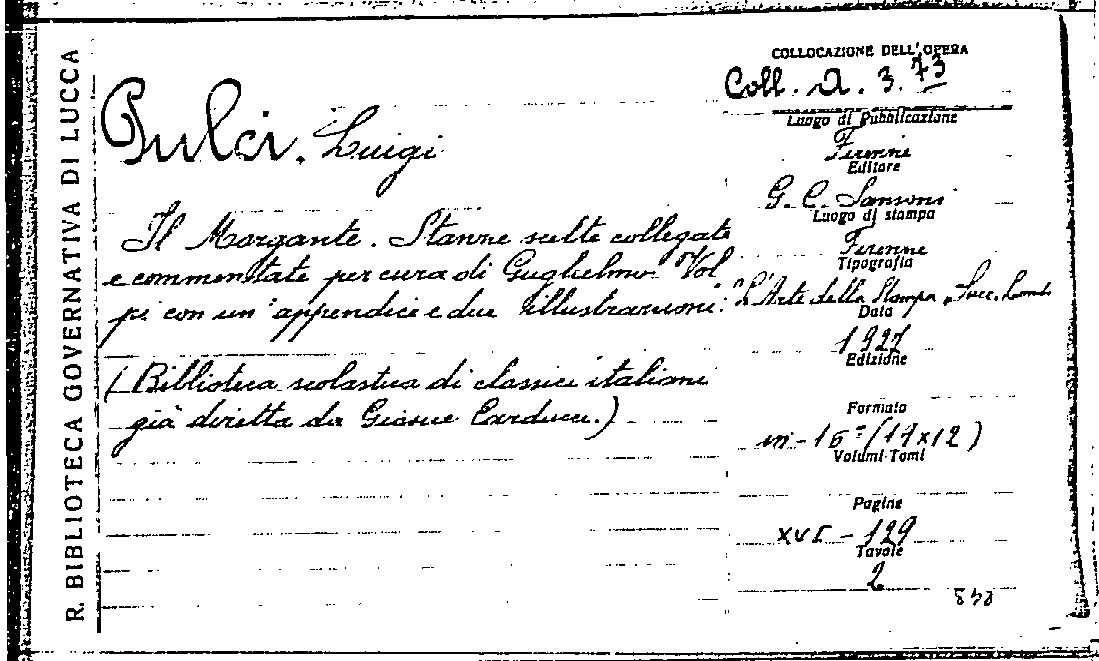 R. BIBLIOTECA GOVERNATIVA DI LUCCA
Pulci, Luigi
Il Morgante. Stanze scelte collegate
e commentate per cura di Guglielmo Vol
pi con un' appendice e due illustrazioni.
(Biblioteca scolastica di classici italiani
già diretta da Giosue Carducci.)
COLLOCAZIONE DELL'OPERA
Coll. A. 3. 73
Luogo di Pubblicazione
Firenze
Editore
G. C. Sansoni
Luogo di stampa
Firenze
Tipografia
"L'Arte della Stampa, Succ. Landi
Data
1927
Edizione
Formato
in-16° (17x12)
Volumi-Tomi
Pagine
XVI - 129
Tavole
2